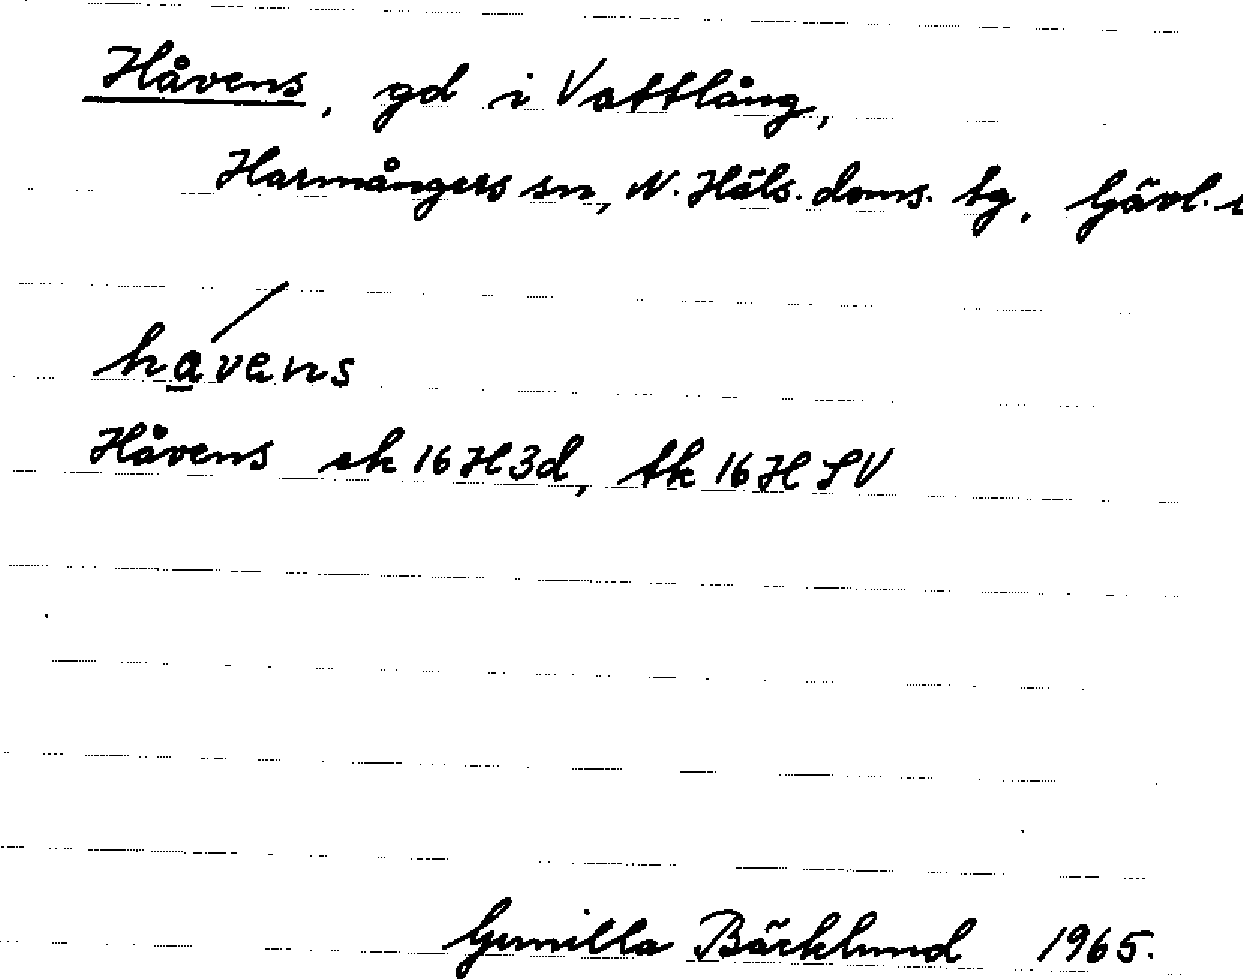 Håvens, gd i Vattlång,
Harmångers sn, N. Häls. doms. tg, Gävl. l
havens
Håvens ek 16H3d, tk 16H SV
Gunilla Bäcklund 1965.